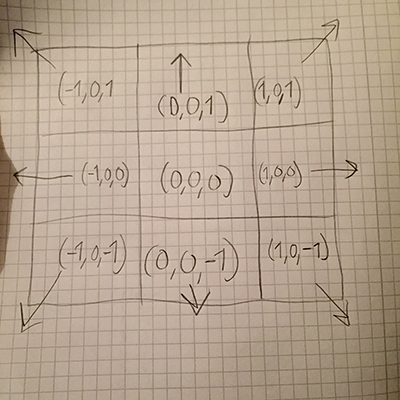 (-1,0,1 (0,0,1) (1,0,1)
(-1,0,0) (0,0,0) (1,0,0)
(-1,0,-1) (0,0,-1) (1,0,-1)